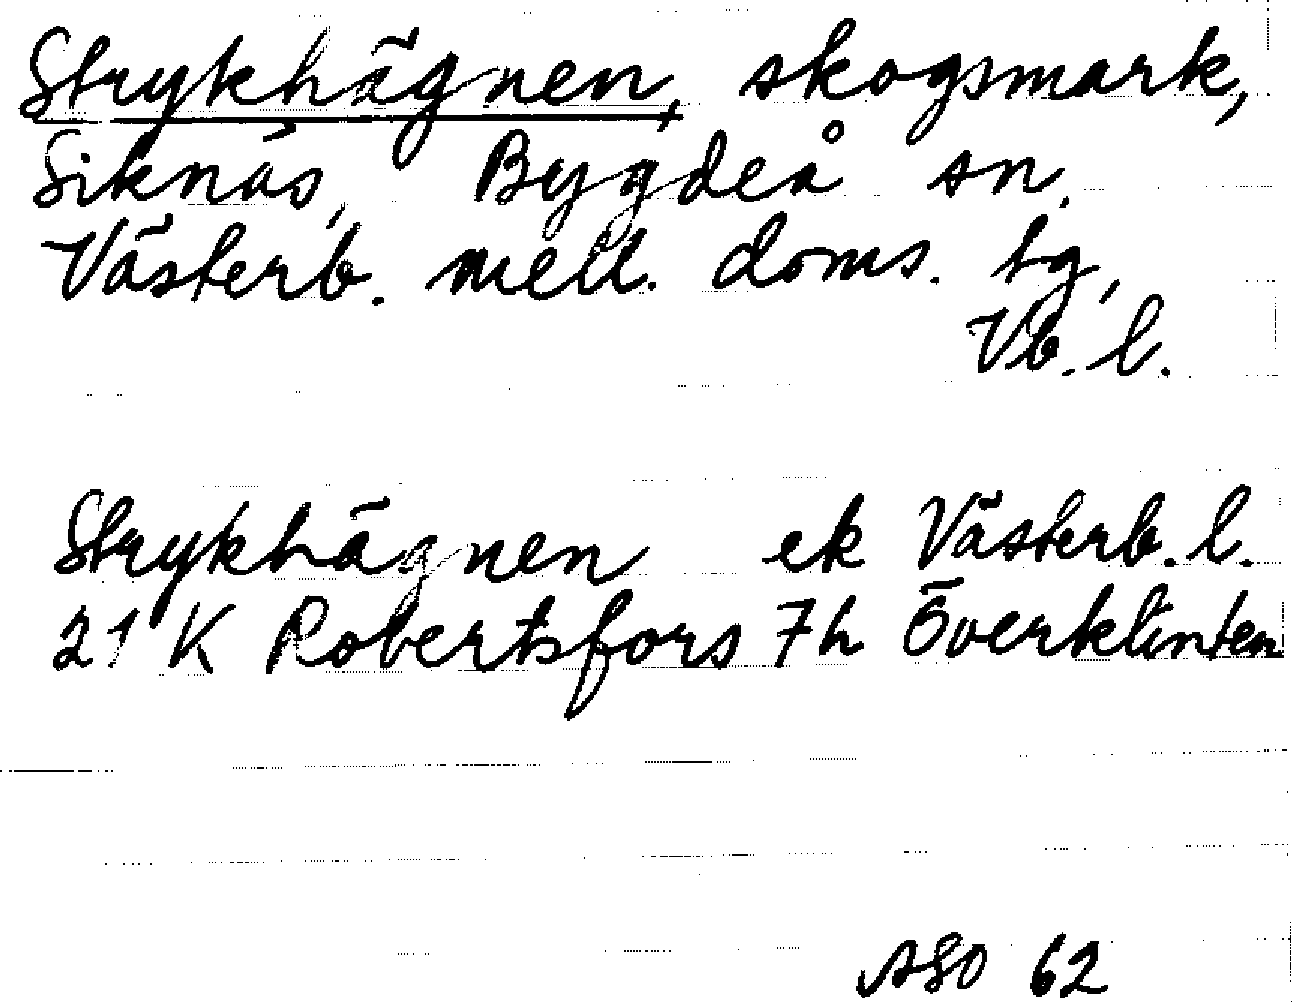 Strykhägnen, skogsmark,
Siknäs, Bygdeå sn.
Västerb. mell. doms. tg,
Vb. l.
Strykhägnen ek Västerb. l.
21 K Robertsfors 7h Överklinten
ASO 62